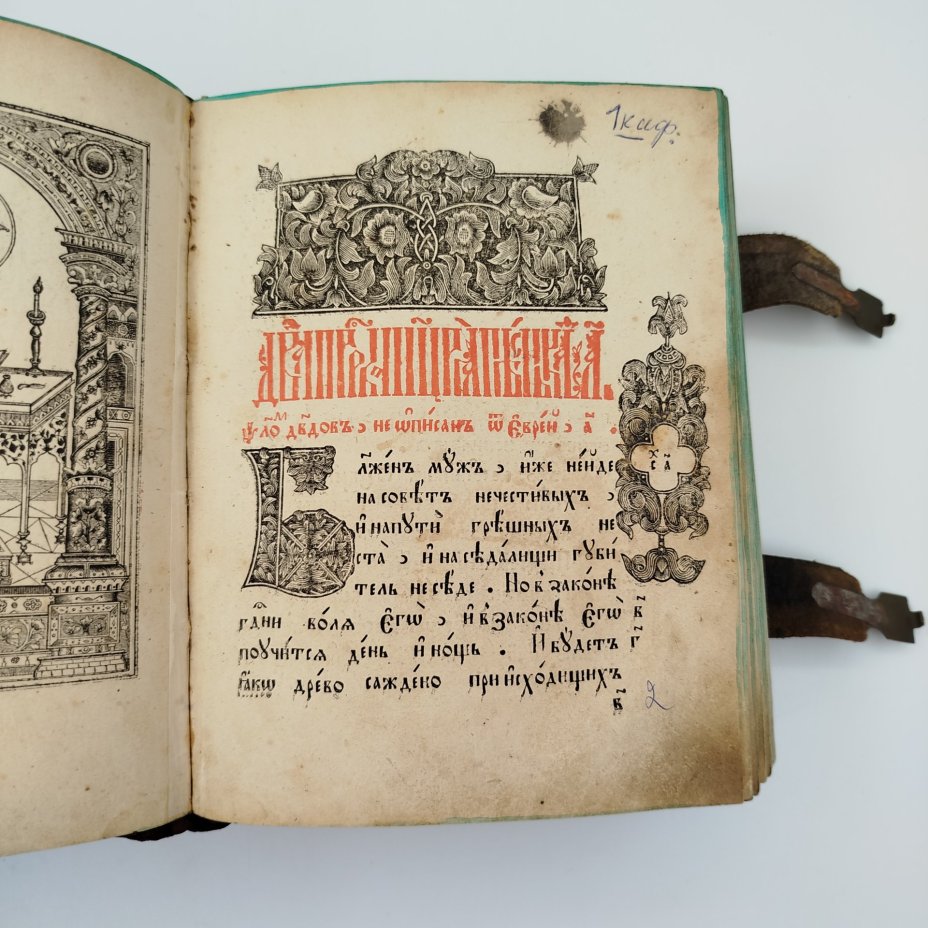 1 каф.
Дв҃да прⷪ҇рока и цр҃ѧ пѣснь а҃.
ѱало́мъ дв҃довъ, не ѡ҆пи́санъ ѿ є҆врє́й, а҃.
Бл҃же́нъ мѹ́жъ, и҆́же не и҆́де
на совѣ́тъ нечести́выхъ,
и҆ на пѹти̑ грѣ́шныхъ не
ста̀, и҆ на сѣда́лищи гѹби́
тель не сѣ́де. Но в зако́нѣ
гдⷭ҇ни во́лѧ є҆гѡ̀, и҆ в зако́нѣ є҆гѡ̀
поѹчи́тсѧ де́нь и҆ но́щь. И҆ бѹ́детъ
ꙗ҆́кѡ дре́во сажде́но при и҆схо́дищихъ
х
с а҃
в҃
г҃
в҃
2